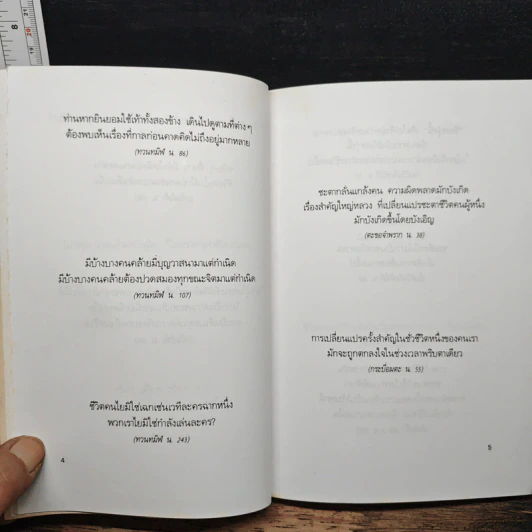 ท่านหากยินยอมใช้เท้าทั้งสองข้าง เดินไปดูตามที่ต่างๆ
ต้องพบเห็นเรื่องที่กาลก่อนคาดคิดไม่ถึงอยู่มากหลาย
(ทวนทมิฬ น. 86)
มีบ้างบางคนคล้ายมีบุญวาสนามาแต่กำเนิด
มีบ้างบางคนคล้ายต้องปวดสมองทุกขณะจิตมาแต่กำเนิด
(ทวนทมิฬ น. 107)
ชีวิตคนไยมิใช่เฉกเช่นเวทีละครฉากหนึ่ง
พวกเราไยมิใช่กำลังเล่นละคร?
(ทวนทมิฬ น. 243)
4
ชะตากลั่นแกล้งคน ความผิดพลาดมักบังเกิด
เรื่องสำคัญใหญ่หลวง ที่เปลี่ยนแปรชะตาชีวิตคนผู้หนึ่ง
มักบังเกิดขึ้นโดยบังเอิญ
(ตะขอจำพราก น. 38)
การเปลี่ยนแปรครั้งสำคัญในชั่วชีวิตหนึ่งของคนเรา
มักจะถูกตกลงใจในช่วงเวลาพริบตาเดียว
(กระบี่อมตะ น. 55)
5
8
20
21